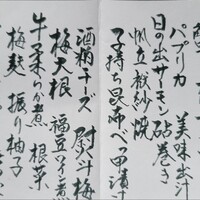 パプリカ 美味出汁
日の出サーモン砧巻き
帆立板紗焼
子持ち昆布べっ甲漬け
酒粕チーズ 慰斗梅
梅大根 福豆ワイン煮
牛柔らか煮 根菜
梅麩 振り柚子